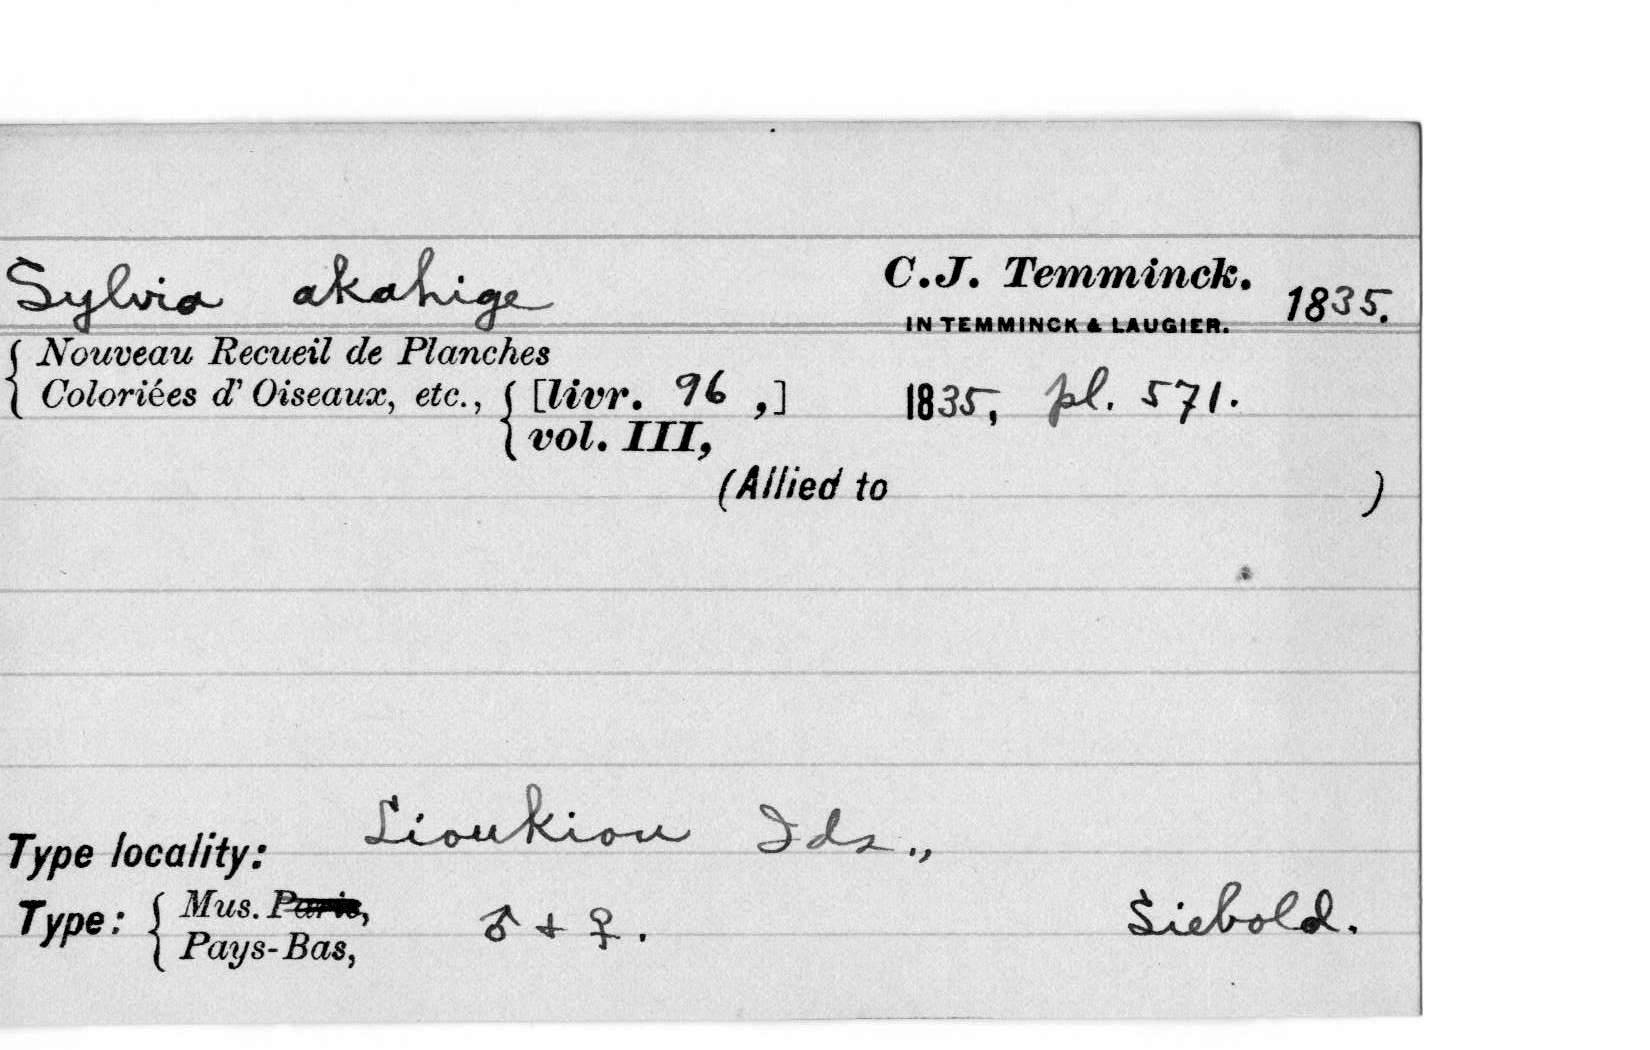 Sylvia akahige C.J. Temminck. 1835.
IN TEMMINCK & LAUGIER.
Nouveau Recueil de Planches
Coloriées d' Oiseaux, etc., [livr. 96 ,] 1835, pl. 571.
vol. III,
(Allied to )
Type locality: Lioukiou Ids.,
Type: Mus. Paris, ♂ + ♀. Siebold.
Pays-Bas,